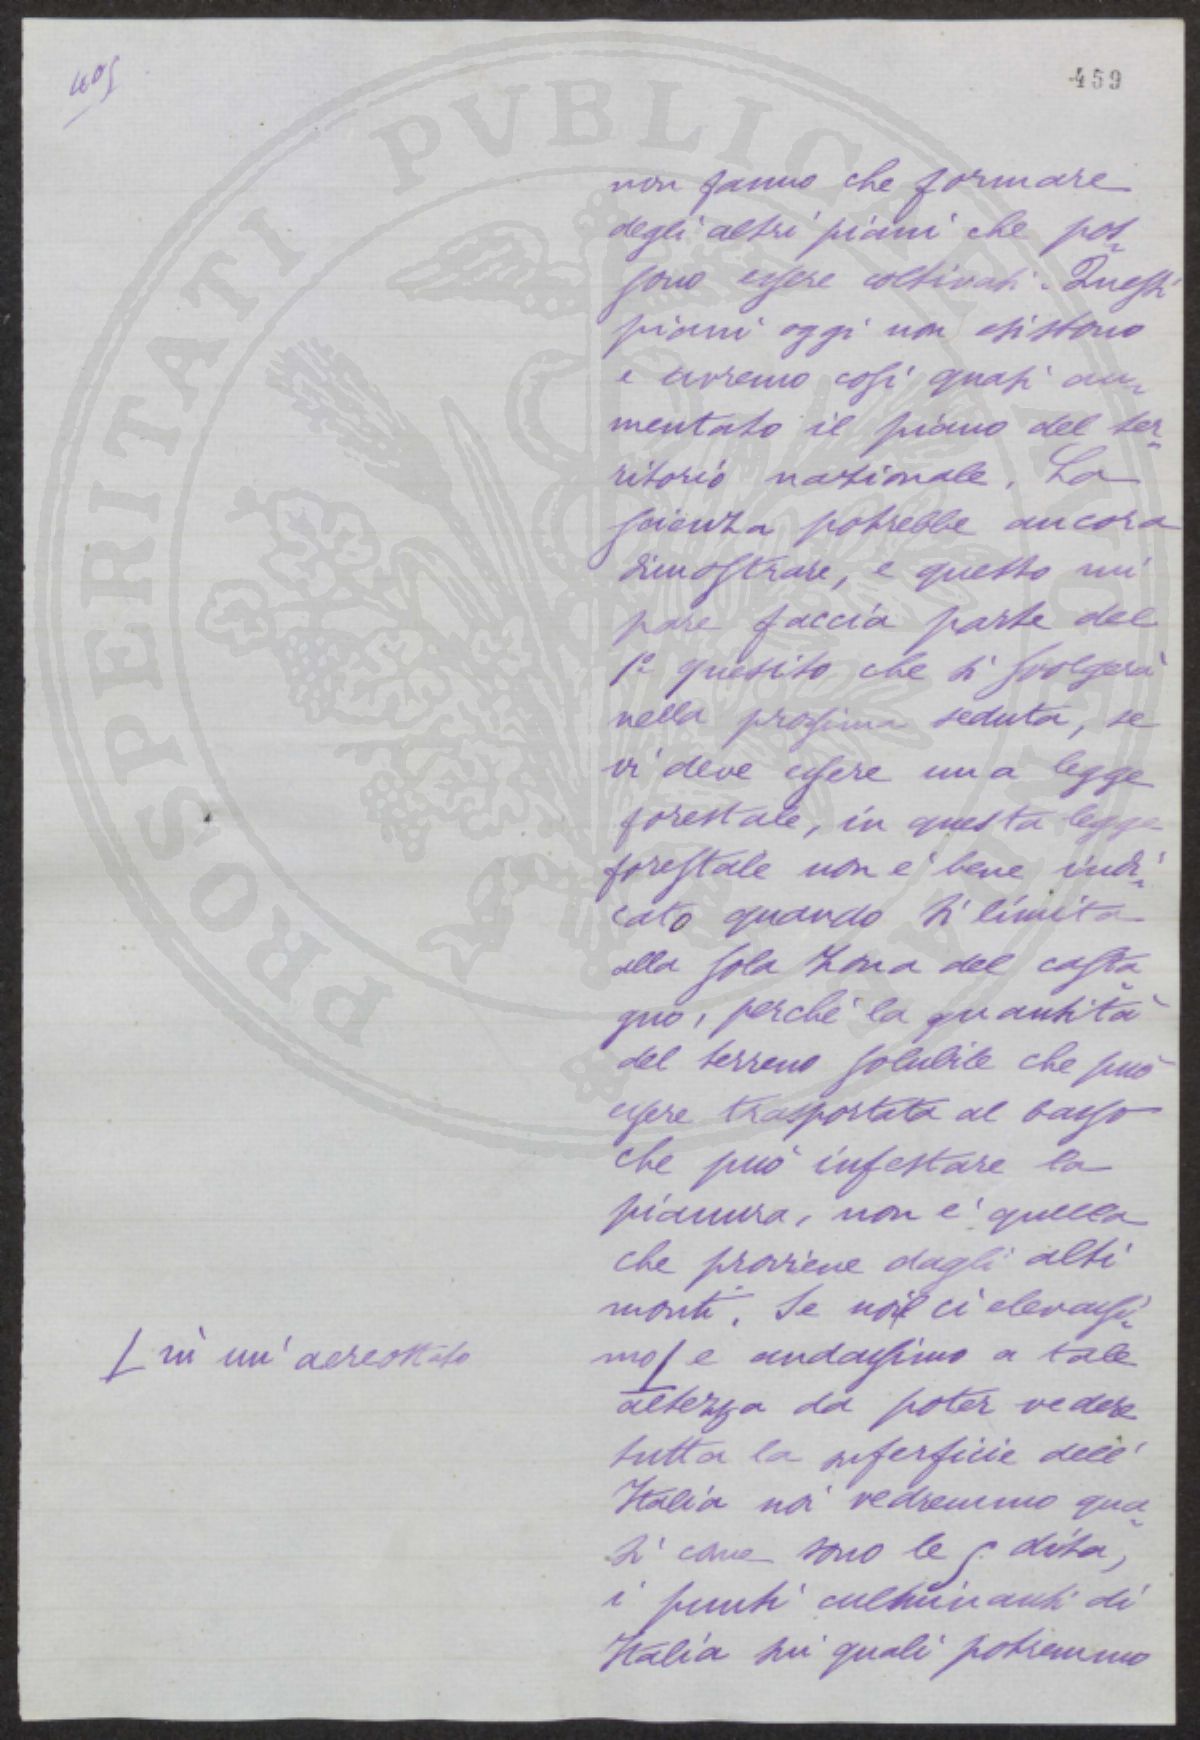 405
459
non fanno che formare
degli altri piani che pos-
sono essere coltivati. Questi
piani oggi non esistono
e avremo così quasi au-
mentato il piano del ter-
ritorio nazionale. La
scienza potrebbe ancora
dimostrare, e questo mi
pare faccia parte del
1º quesito che si svolgerà
nella prossima seduta, se
vi deve essere una legge
forestale, in questa legge
forestale non è bene indi-
cato quando si limita
alla sola zona del casta-
gno, perchè la quantità
del terreno solubile che può
essere trasportata al basso
che può infestare la
pianura, non è quella
che proviene dagli alti
monti. Se noi ci elevassi-
mo [ e andassimo a tale
[ in un' aereostato
altezza da poter vedere
tutta la superficie dell'
Italia noi vedremmo qua-
si come sono le 5 dita,
i punti culminanti di
Italia sui quali potremmo
PROSPERITATI PVBLICAE AVGENDAE